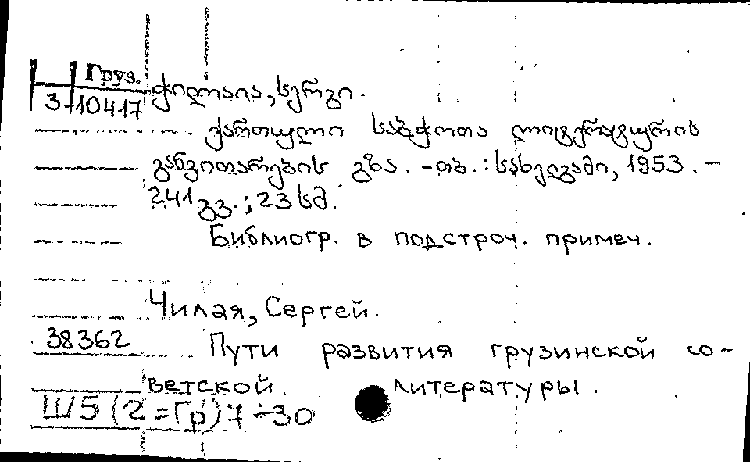 Груз.
3-10417
ჭილაია, სერგი.
ქართული საბჭოთა ლიტერატურის
განვითარების გზა. - თბ. : სახელგამი, 1953. -
241 გვ. ; 23 სმ.
Библиогр. в подстроч. примеч.
Чилая, Сергей.
38362
Пути развития грузинской со-
ветской литературы.
Ш5(2=Гр)7-30